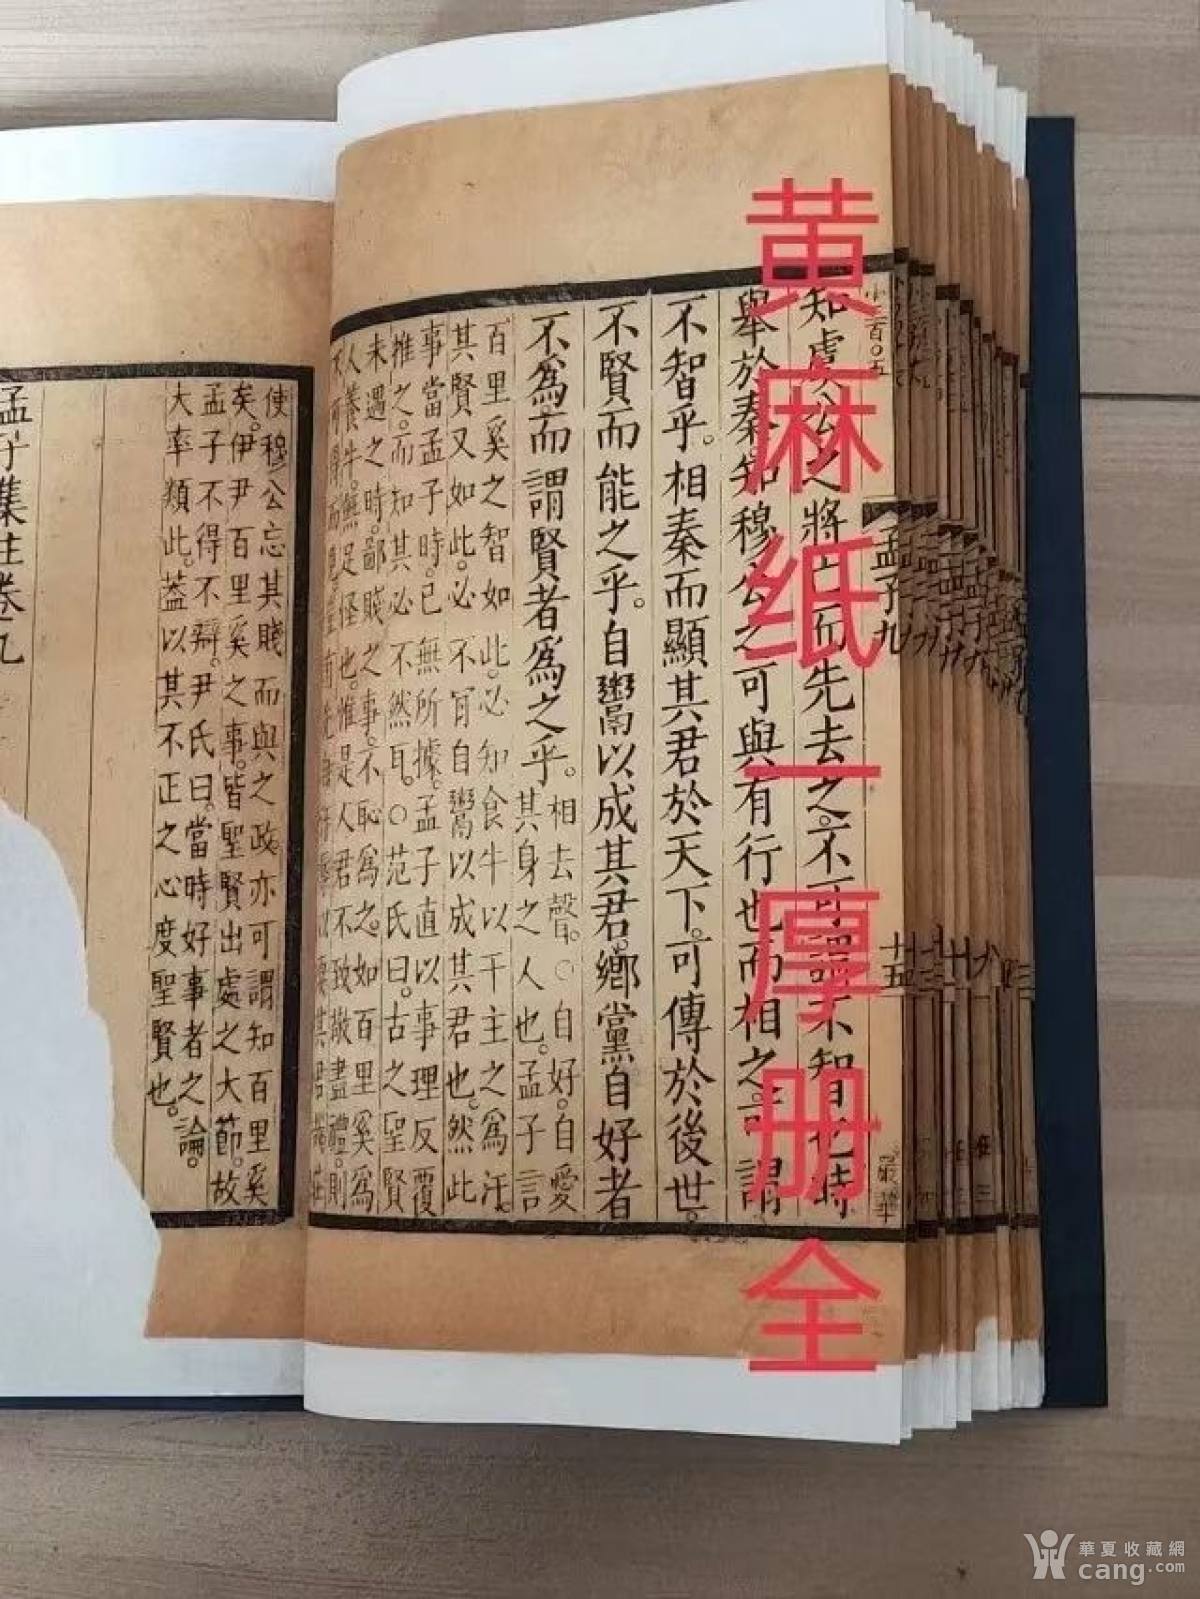 黄麻纸一厚册全
小三百〇五
孟子九
十五
知虞公之將亡而先去之不可謂不智也時
舉於秦知穆公之可與有行也而相之可謂
不智乎。相秦而顯其君於天下。可傳於後世。
不賢而能之乎。自鬻以成其君。鄉黨自好者
不爲而謂賢者爲之乎。
相去聲。○自好。自愛
其身之人也。孟子言
百里奚之智如此。必知食牛以干主之爲汙。
其賢又如此。必不肎自鬻以成其君也。然此
事當孟子時。已無所據。孟子直以事理反覆
推之。而知其必不然耳。○范氏曰。古之聖賢
未遇之時。鄙賤之事。不恥爲之。如百里奚爲
人養牛。無足怪也。惟是人君不致敬盡禮。則
使穆公忘其賤而與之政。亦可謂知百里奚
矣。伊尹百里奚之事。皆聖賢出處之大節。故
孟子不得不辯。尹氏曰。當時好事者之論。
大率類此。蓋以其不正之心度聖賢也。
孟子集注卷九
華夏收藏網
cang.com